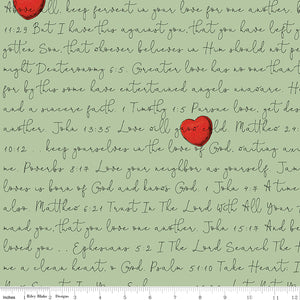 Above all, keep fervent in your love for one another.
11:29 But I have this against you, that you have left y
gotten Son, that whoever believes in Him should not p
might Deuteronomy 6:5. Greater love has no one than t
for by this some have entertained angels unaware. H
and a sincere faith. 1 Timothy 1:5 Pursue love, yet des
another. John 13:35 Love will grow cold. Matthew 24:
10:12 ... keep yourselves in the love of God, waiting anx
me. Proverbs 8:17 Love your neighbor as yourself. Jam
loves is born of God and knows God. 1 John 4:7 A time
also. Matthew 6:21 Trust In The Lord With All Your
mand you, that you love one another. John 15:17 And be
loved you ... Ephesians 5:2 I The Lord Search The H
me a clean heart, o God. Psalm 51:10 Take Heart, I
inches 1 Riley Blake 2 Designs 3 4 5 6 7 8 9 10 11 12